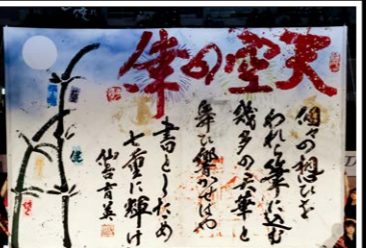 実空の筆
個々の想ひを
われら筆に込む
幾多の天華と
舞ひ響かせはや
書としため
七重に輝け
仙台育英